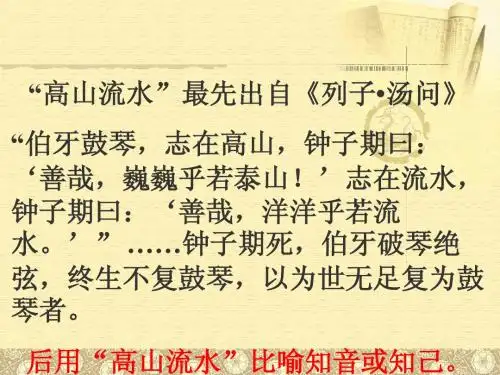 “高山流水”最先出自《列子•汤问》
“伯牙鼓琴，志在高山，钟子期曰：
‘善哉，巍巍乎若泰山！’志在流水，
钟子期曰：‘善哉，洋洋乎若流
水。’”……钟子期死，伯牙破琴绝
弦，终生不复鼓琴，以为世无足复为鼓
琴者。
后用“高山流水”比喻知音或知己。